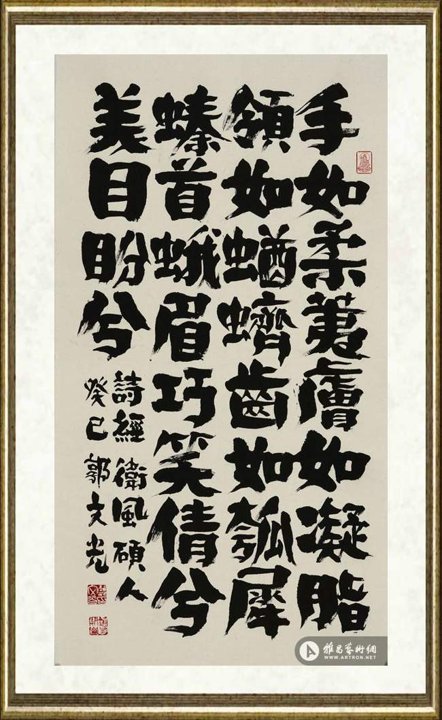 手如柔荑膚如凝脂
領如蝤蠐齒如瓠犀
螓首蛾眉巧笑倩兮
美目盼兮
詩經衛風碩人
癸巳郭文光
雅昌藝術網
WWW.ARTRON.NET